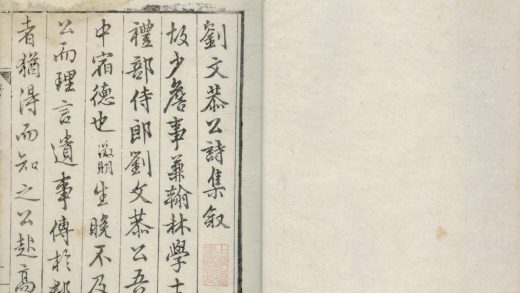 劉文恭公詩集叙
故少詹事兼翰林學士
禮部侍郎劉文恭公吾
中宿德也徵明生晚不及
公而理言遺事傳於
者猶得而知之公起高